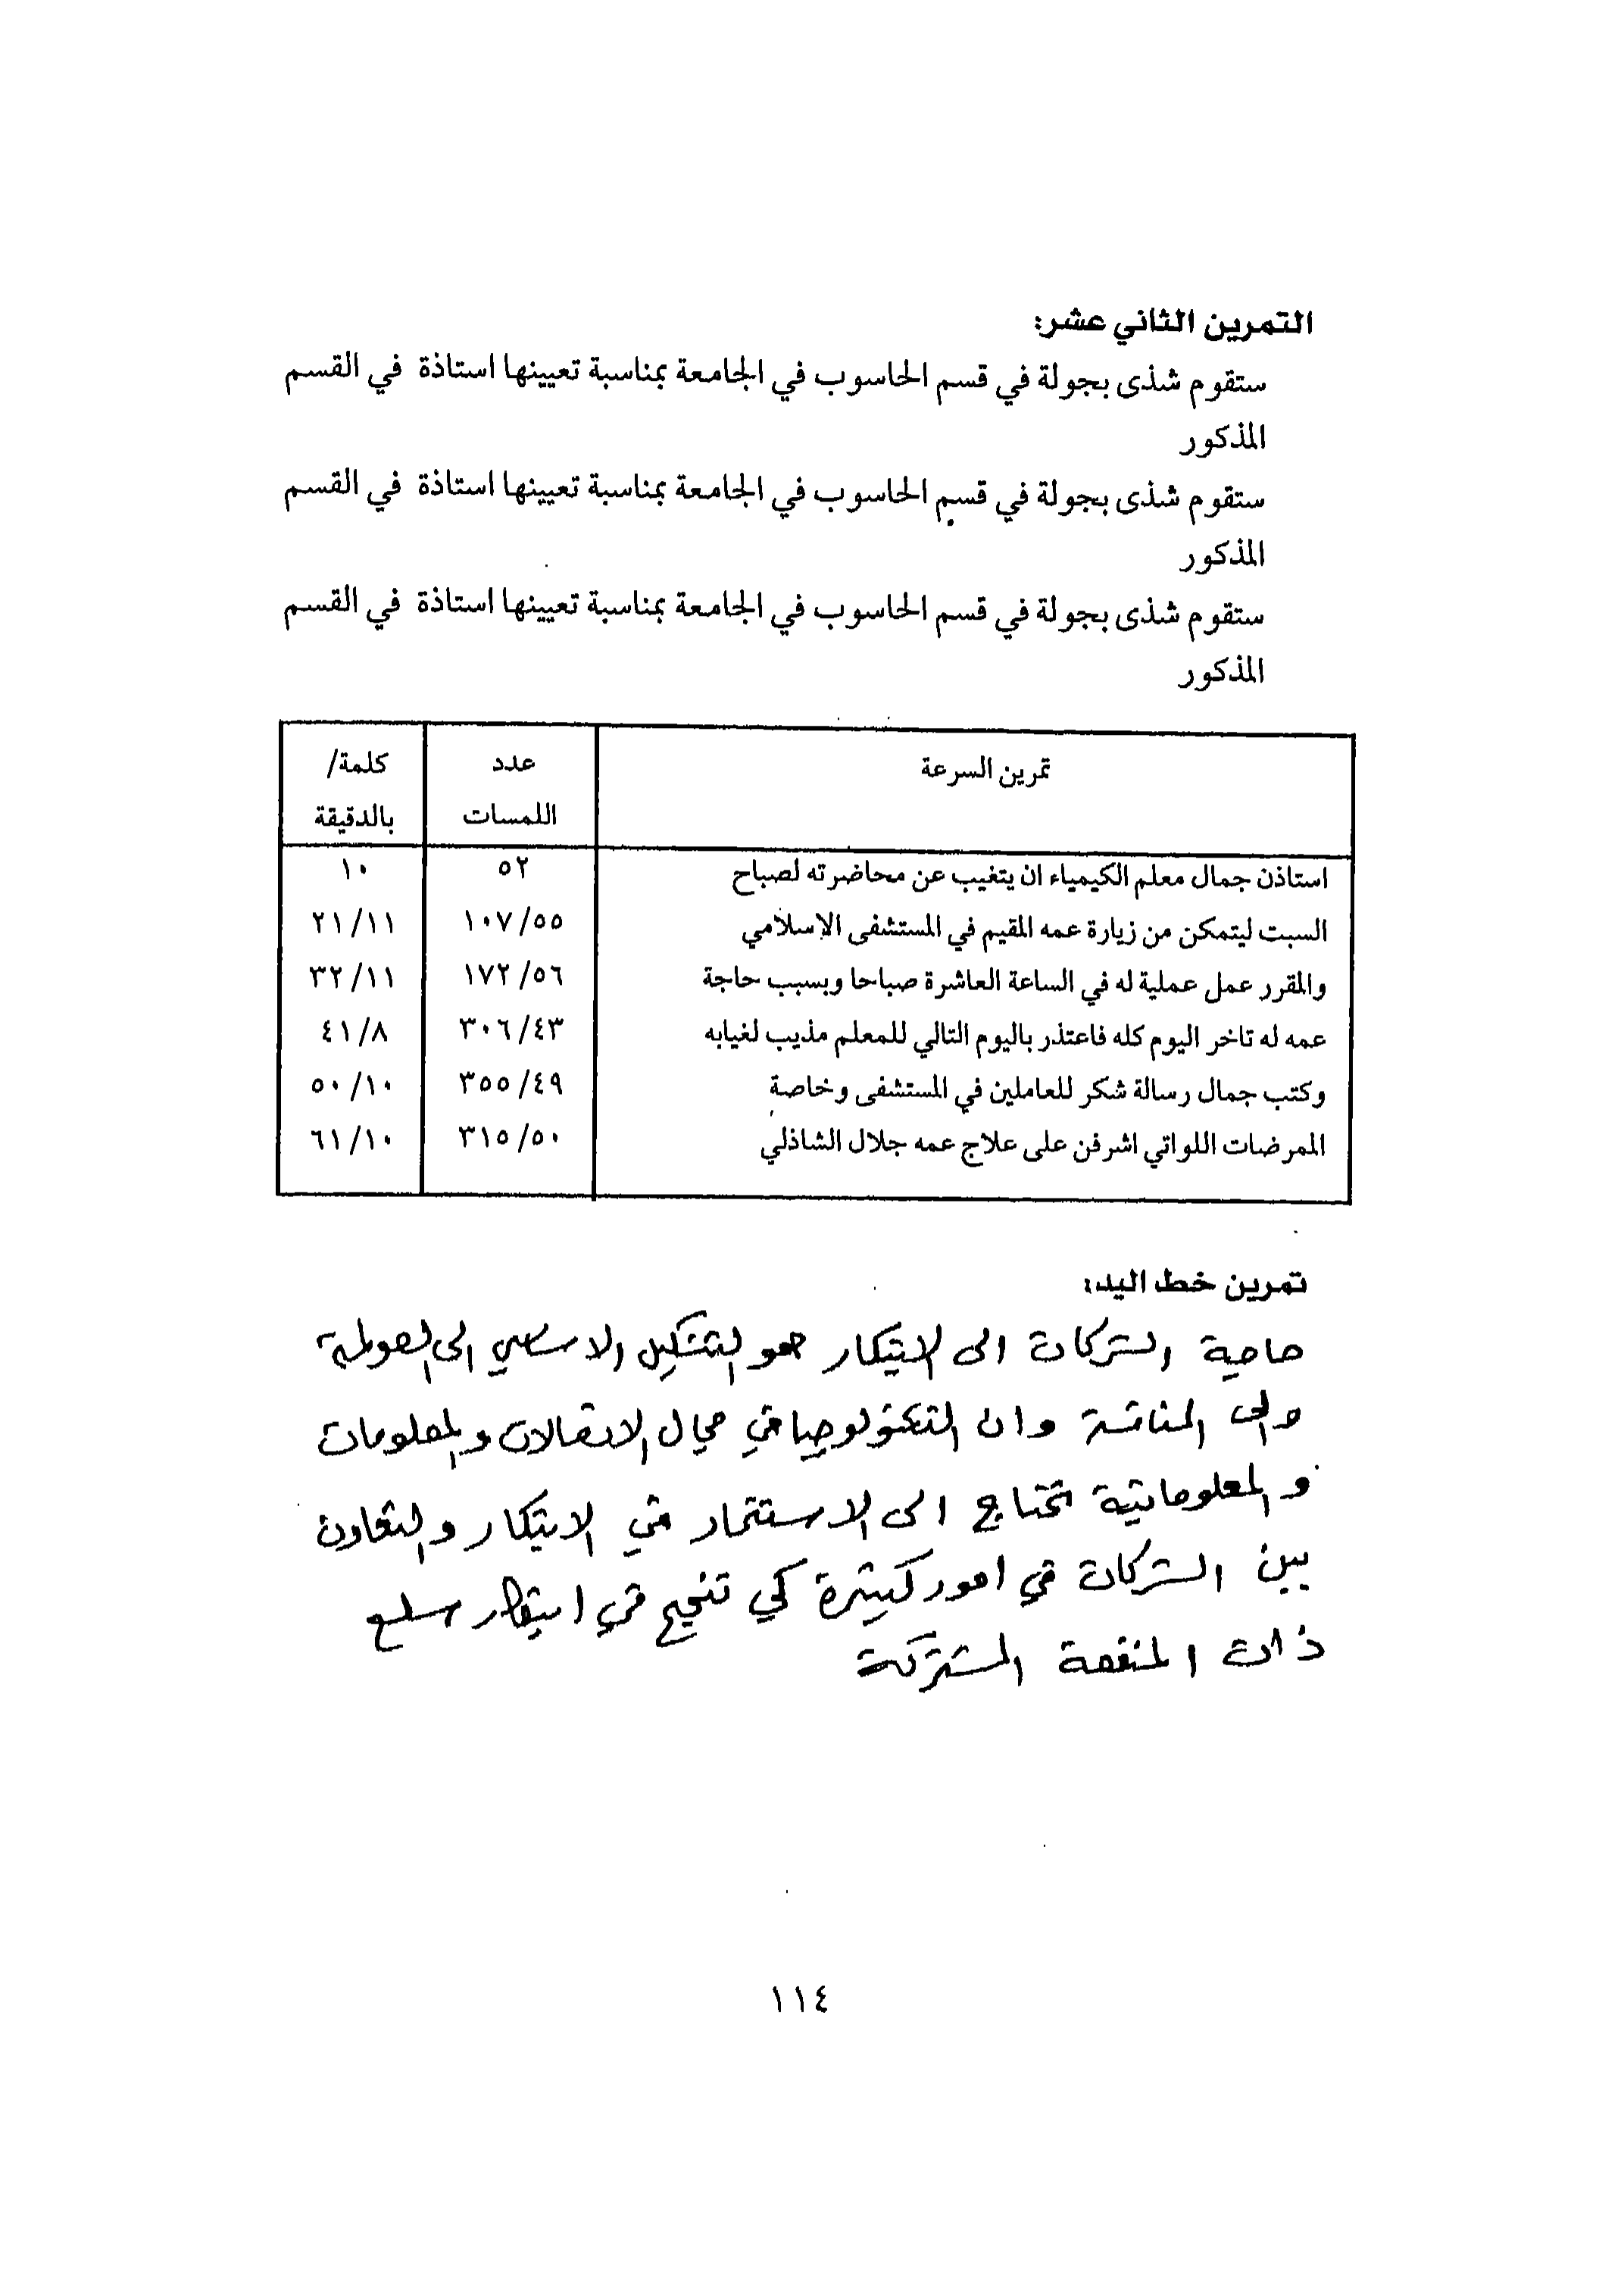 التمرين الثاني عشر:
ستقوم شذى بجولة في قسم الحاسوب في الجامعة بمناسبة تعيينها استاذة في القسم
المذكور
ستقوم شذى بجولة في قسم الحاسوب في الجامعة بمناسبة تعيينها استاذة في القسم
المذكور
ستقوم شذى بجولة في قسم الحاسوب في الجامعة بمناسبة تعيينها استاذة في القسم
المذكور
تمرين السرعة عدد كلمة/
اللمسات بالدقيقة
استاذن جمال معلم الكيمياء ان يتغيب عن محاضرته لصباح ٥٢ ١٠
السبت ليتمكن من زيارة عمه المقيم في المستشفى الإسلامي ١٠٧/٥٥ ٢١/١١
والمقرر عمل عملية له في الساعة العاشرة صباحا وبسبب حاجة ١٧٢/٥٦ ٣٢/١١
عمه له تاخر اليوم كله فاعتذر باليوم التالي للمعلم مذيب لغيابه ٣٠٦/٤٣ ٤١/٨
وكتب جمال رسالة شكر للعاملين في المستشفى وخاصة ٣٥٥/٤٩ ٥٠/١٠
الممرضات اللواتي اشرفن على علاج عمه جلال الشاذلي ٣١٥/٥٠ ٦١/١٠
تمرين خط اليد:
حاجة الشركات الى الابتكار هو التشكيل الاساسي الى العولمة
والى المنافسة وان التكنولوجيا في مجال الاتصالات والمعلومات
والمعلوماتية تحتاج الى الاستثمار في الابتكار والتعاون
بين الشركات في امور كثيرة كي تنجح في ابتكار سلع
ذات المنفعة المشتركة
١١٤